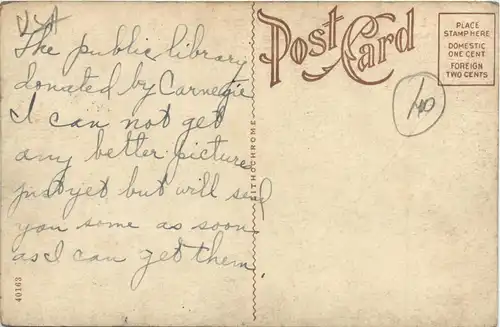 USA
The public library
donated by Carnegie
I can not get
any better pictures
just yet but will send
you some as soon
as I can get them
Post Card
PLACE
STAMP HERE
DOMESTIC
ONE CENT
FOREIGN
TWO CENTS
40
LITHOCHROME
40163